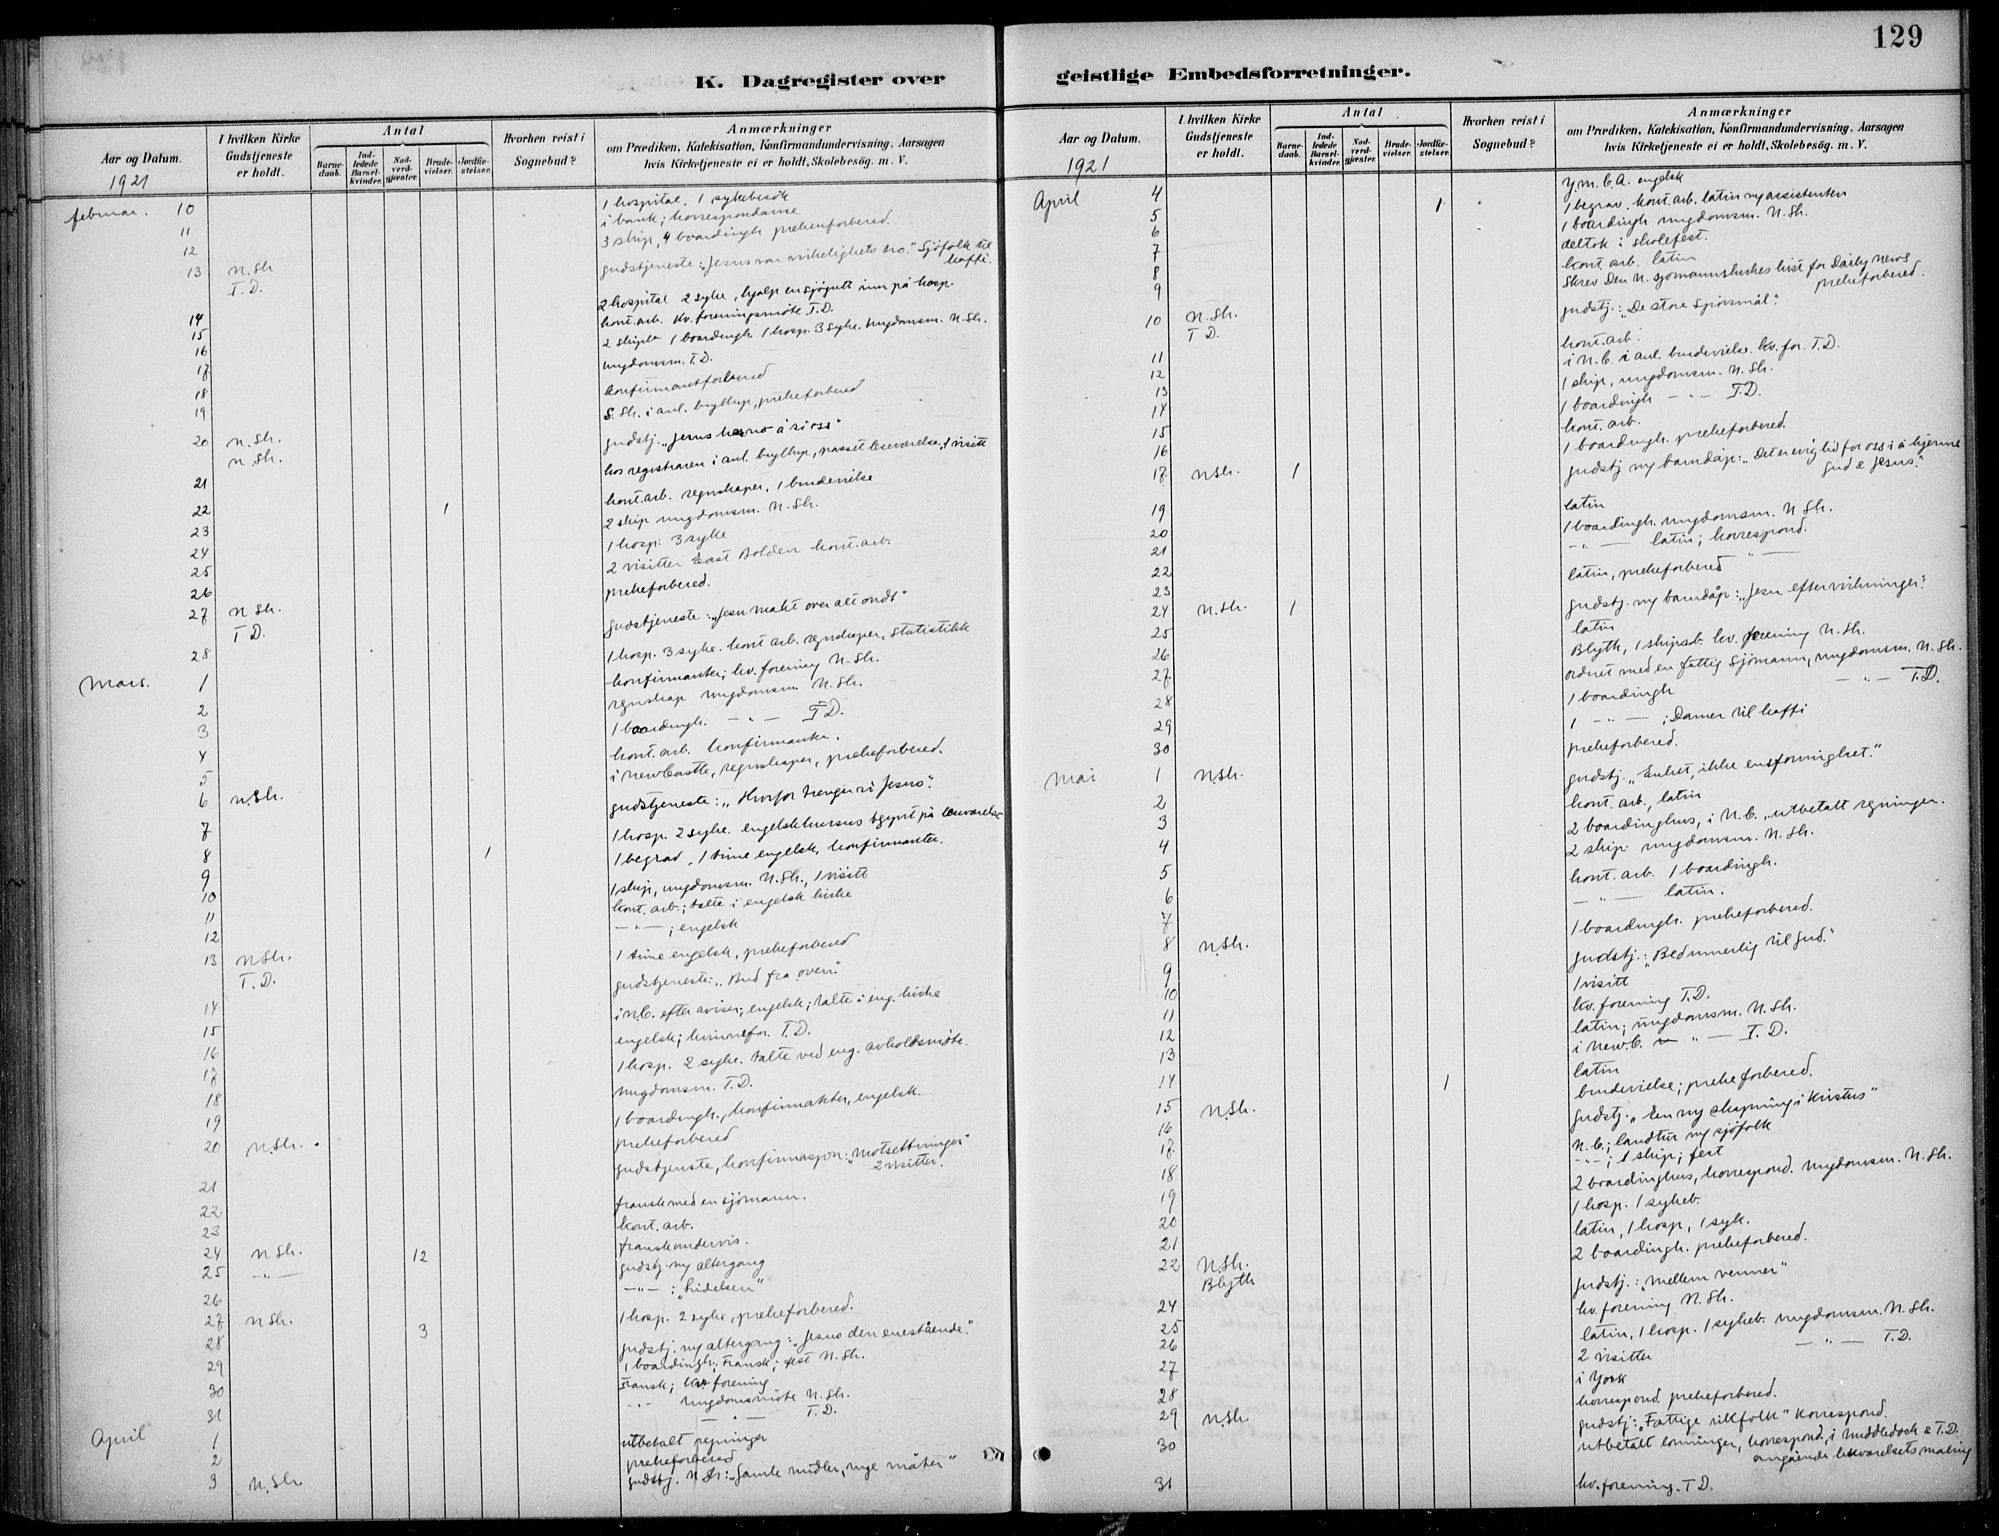 129
K. Dagregister over geistlige Embedsforretninger.
Aar og Datum. 1921
I hvilken Kirke Gudstjeneste er holdt.
Antal
Barnedaab. Indledede Barselkvinder. Nadverdgjæster. Brudevielser. Jordfæstelser.
Hvorhen reist i Sognebud?
Anmærkninger om Prædiken, Katekisation, Konfirmandundervisning, Aarsagen hvis Kirketjeneste ei er holdt, Skolebesög. m. V.
februar. 10 1 hospital, 1 sykebesök
11 i bank; korrespondanse
12 3 skip, 4 boardingh. prekenforbered.
13 N.Sh. T.D. gudstjeneste: "Jesus var virkelighets tro." Sjöfolk til kaffi.
2 hospital 2 syke, hjalp en sjögutt inn på hosp.
14 kont. arb. Kv. foreningsmöte T.D.
15 2 skip 1 boardingh. 1 hosp. 3 syke. ungdomsm. N.Sh.
16 ungdomsm. T.D.
17 konfirmantforbered
18 S.Sh. i anl. bryllup, prekeforbered
19
20 N.Sh. N.Sh. gudstj. "Jesus har no å si oss"
21 hos registraren i anl. bryllup, passet leseværelse, 1 visitt
kont. arb. regnskaper, 1 brudevielse
22 1 2 skip ungdomsm. N.Sh.
23 1 hosp. 3 syke
24 2 visitter East Boldon kont. arb.
25 prekeforbered.
26
27 N.Sh. T.D. gudstjeneste: "Jesu makt over alt ondt"
28 1 hosp. 3 syke. kont arb. regnskaper, Statistikk
Mars. 1 konfirmanter; kv. forening N.Sh.
2 regnskap ungdomsm. N.Sh.
3 1 boardingh. -"- T.D.
4 kont. arb. konfirmanter.
5 i NewCastle, regnskaper, prekeforbered.
6 N.Sh. gudstjeneste: "Hvorfor trenger vi Jesus".
7 1 hosp. 2 syke. engelskkursus begynt på leseværelse
8 1 1 begrav. 1 time engelsk, konfirmanter.
9 1 skip, ungdomsm. N.Sh., 1 visitt
10 kont. arb.; talte i engelsk kirke
11 -"- ; engelsk
12 1 time engelsk, prekeforbered
13 N.Sh. T.D. gudstjeneste: "Bud fra oven".
14 i N.C. efter aviser; engelsk; talte i eng. kirke
15 engelsk; kvinnefor. T.D.
16 1 hosp. 2 syke. talte ved eng. avholdsmöte.
17 ungdomsm. T.D.
18 1 boardingh., konfirmanter, engelsk
19 prekeforbered
20 N.Sh. gudstjeneste, konfirmasjon: "Motsettninger" 2 visitter.
21 fransk med en sjömann.
22 kont. arb.
23 franskundervis.
24 N.Sh. 12 gudstj. m/ altergang
25 -"- -"- : "Lidelsen"
26 1 hosp. 2 syke, prekeforbered.
27 N.Sh. 3 gudstj. m/ altergang: "Jesus den enestående."
28 1 boardingh. Fransk; fest N.Sh.
29 Fransk; kv. forening
30 -"- ungdomsmöte N.Sh.
31 -"- T.D.
April 1 utbetalt regninger
2 prekeforbered
3 N.Sh. gudstj. N.Sh: "Gamle midler, nye måter"
Aar og Datum. 1921
I hvilken Kirke Gudstjeneste er holdt.
Antal
Barnedaab. Indledede Barselkvinder. Nadverdgjæster. Brudevielser. Jordfæstelser.
Hvorhen reist i Sognebud?
Anmærkninger om Prædiken, Katekisation, Konfirmandundervisning, Aarsagen hvis Kirketjeneste ei er holdt, Skolebesög. m. V.
Y.M.C.A. engelsk
April 4 1 1 begrav. kont. arb. latin m/ assistenten
5 1 boardingh. ungdomsm. N.Sh.
6 deltok i skolefest.
7 kont. arb. latin
8 Skrev Den N. sjömannskirkes hist for Daily News
9 prekeforbered.
10 N.Sh. T.D. gudstj.: "De store spörsmål".
kont. arb.
11 i N.C. i anl. brudevielse. Kv. for. T.D.
12 1 skip, ungdomsm. N.Sh.
13 1 boardingh -"- T.D.
14 kont. arb.
15 1 boardingh. prekeforbered.
16
17 N.Sh. 1 gudstj m/ barndåp: "Det er evig liv for oss i å kjenne Gud & Jesus."
latin
19 1 boardingh. ungdomsm. N.Sh.
20 -"- latin; korrespond.
21 -"-
22 latin, prekeforbered
23
24 N.Sh. 1 gudstj. m/ barndåp: "Jesu eftervirkninger".
25 latin
26 Blyth, 1 skipsb. kv. forening N.Sh.
27 ordnet med en fattig sjömann, ungdomsm. N.Sh.
28 1 boardingh -"- T.D.
29 1 -"- ; Damer til kaffi
30 prekeforbered.
Mai 1 N.Sh. gudstj. "Enhet, ikke ensformighet."
2 kont. arb., latin
3 2 boardinghus, i N.C. utbetalt regninger.
4 2 skip ungdomsm. N.Sh.
5 kont. arb. 1 boardingh.
6 -"- latin.
7 1 boardingh. prekeforbered.
8 N.Sh. gudstj.: "Bed inderlig til Gud."
9 1 visitt
10 kv. forening T.D.
11 latin; ungdomsm. N.Sh.
12 i New.C. -"- T.D.
13 latin
14 1 brudevielse; prekeforbered.
15 N.Sh. gudstj. "En ny skapning i Kristus"
16 N.C; landtur m/ sjöfolk
17 -"-; 1 skip; fest
18 2 boardinghus, korrespond. ungdomsm. N.Sh.
19 1 hosp. 1 sykeb.
20 latin, 1 hosp, 1 syk.
21 2 boardingh. prekeforbered.
22 N.Sh. Blyth gudstj.: "Mellem venner"
24 kv. forening N.Sh.
25 latin, 1 hosp. 1 sykeb. ungdomsm. N.Sh.
26 2 visitter -"- T.D.
27 i York
28 korrespond. prekeforbered.
29 N.Sh. gudstj: "Fattige rikfolk" Korrespond.
30 utbetalt lönninger, korrespond., i Middledock & T.D. angående leseværelsets maling
31 kv. forening. T.D.